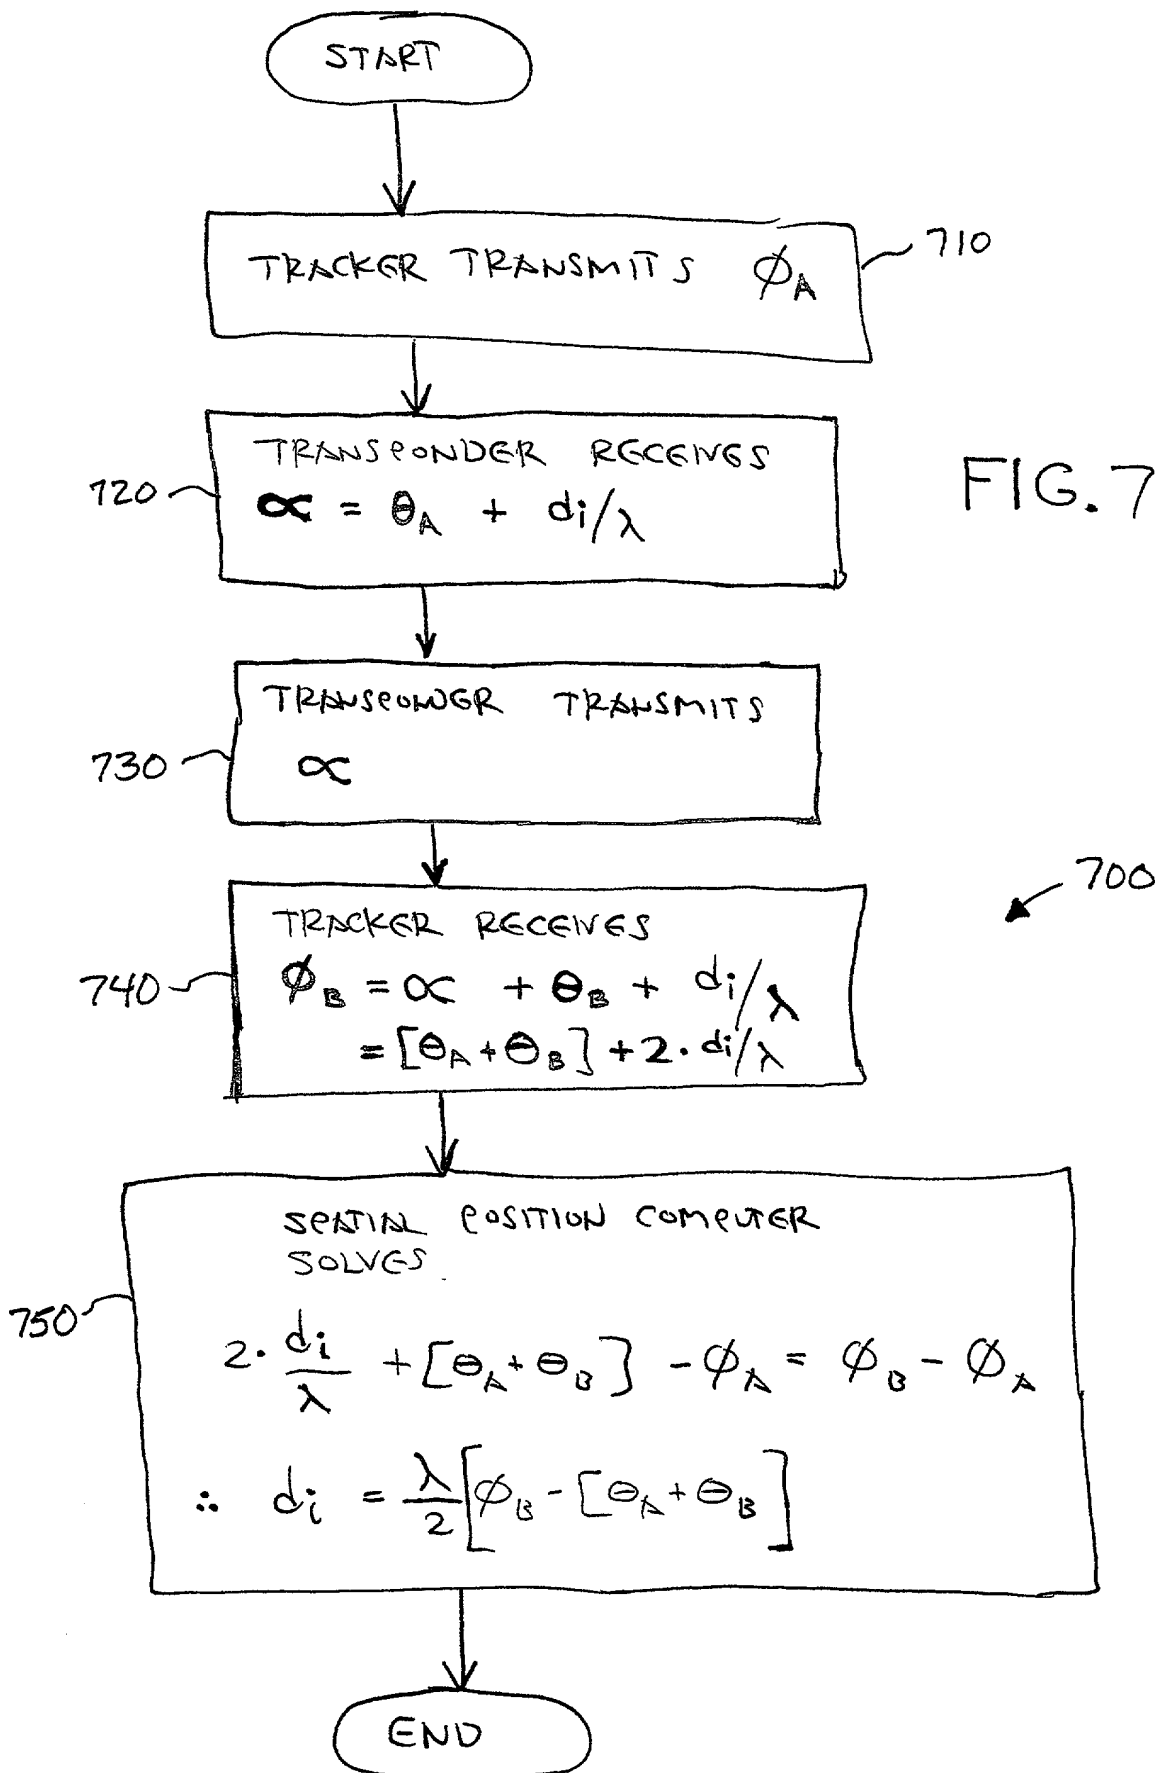 START
TRACKER TRANSMITS ϕ_A
710
TRANSPONDER RECEIVES
720
∝ = θ_A + di/λ
FIG. 7
TRANSPONDER TRANSMITS
730
∝
700
TRACKER RECEIVES
740
ϕ_B = ∝ + θ_B + di/λ
= [θ_A + θ_B] + 2 · di/λ
SPATIAL POSITION COMPUTER
SOLVES
750
2 · di/λ + [θ_A + θ_B] - ϕ_A = ϕ_B - ϕ_A
∴ di = λ/2 [ϕ_B - [θ_A + θ_B]
END